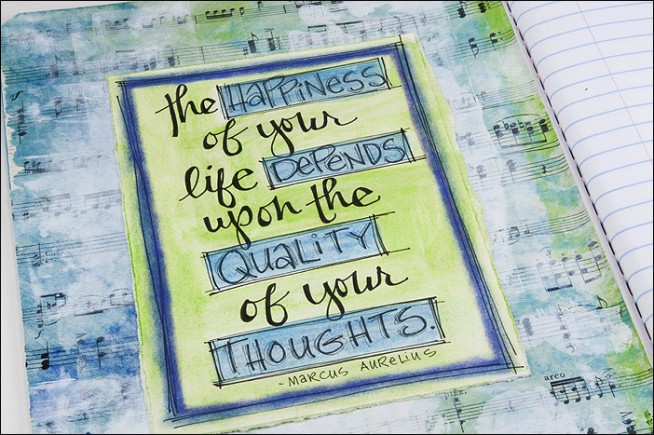 the HAPPiNESS
of your
life DEPENDS
upon the
QUALiTY
of your
THOUGHTS.
- MARCUS AURELIUS
arco